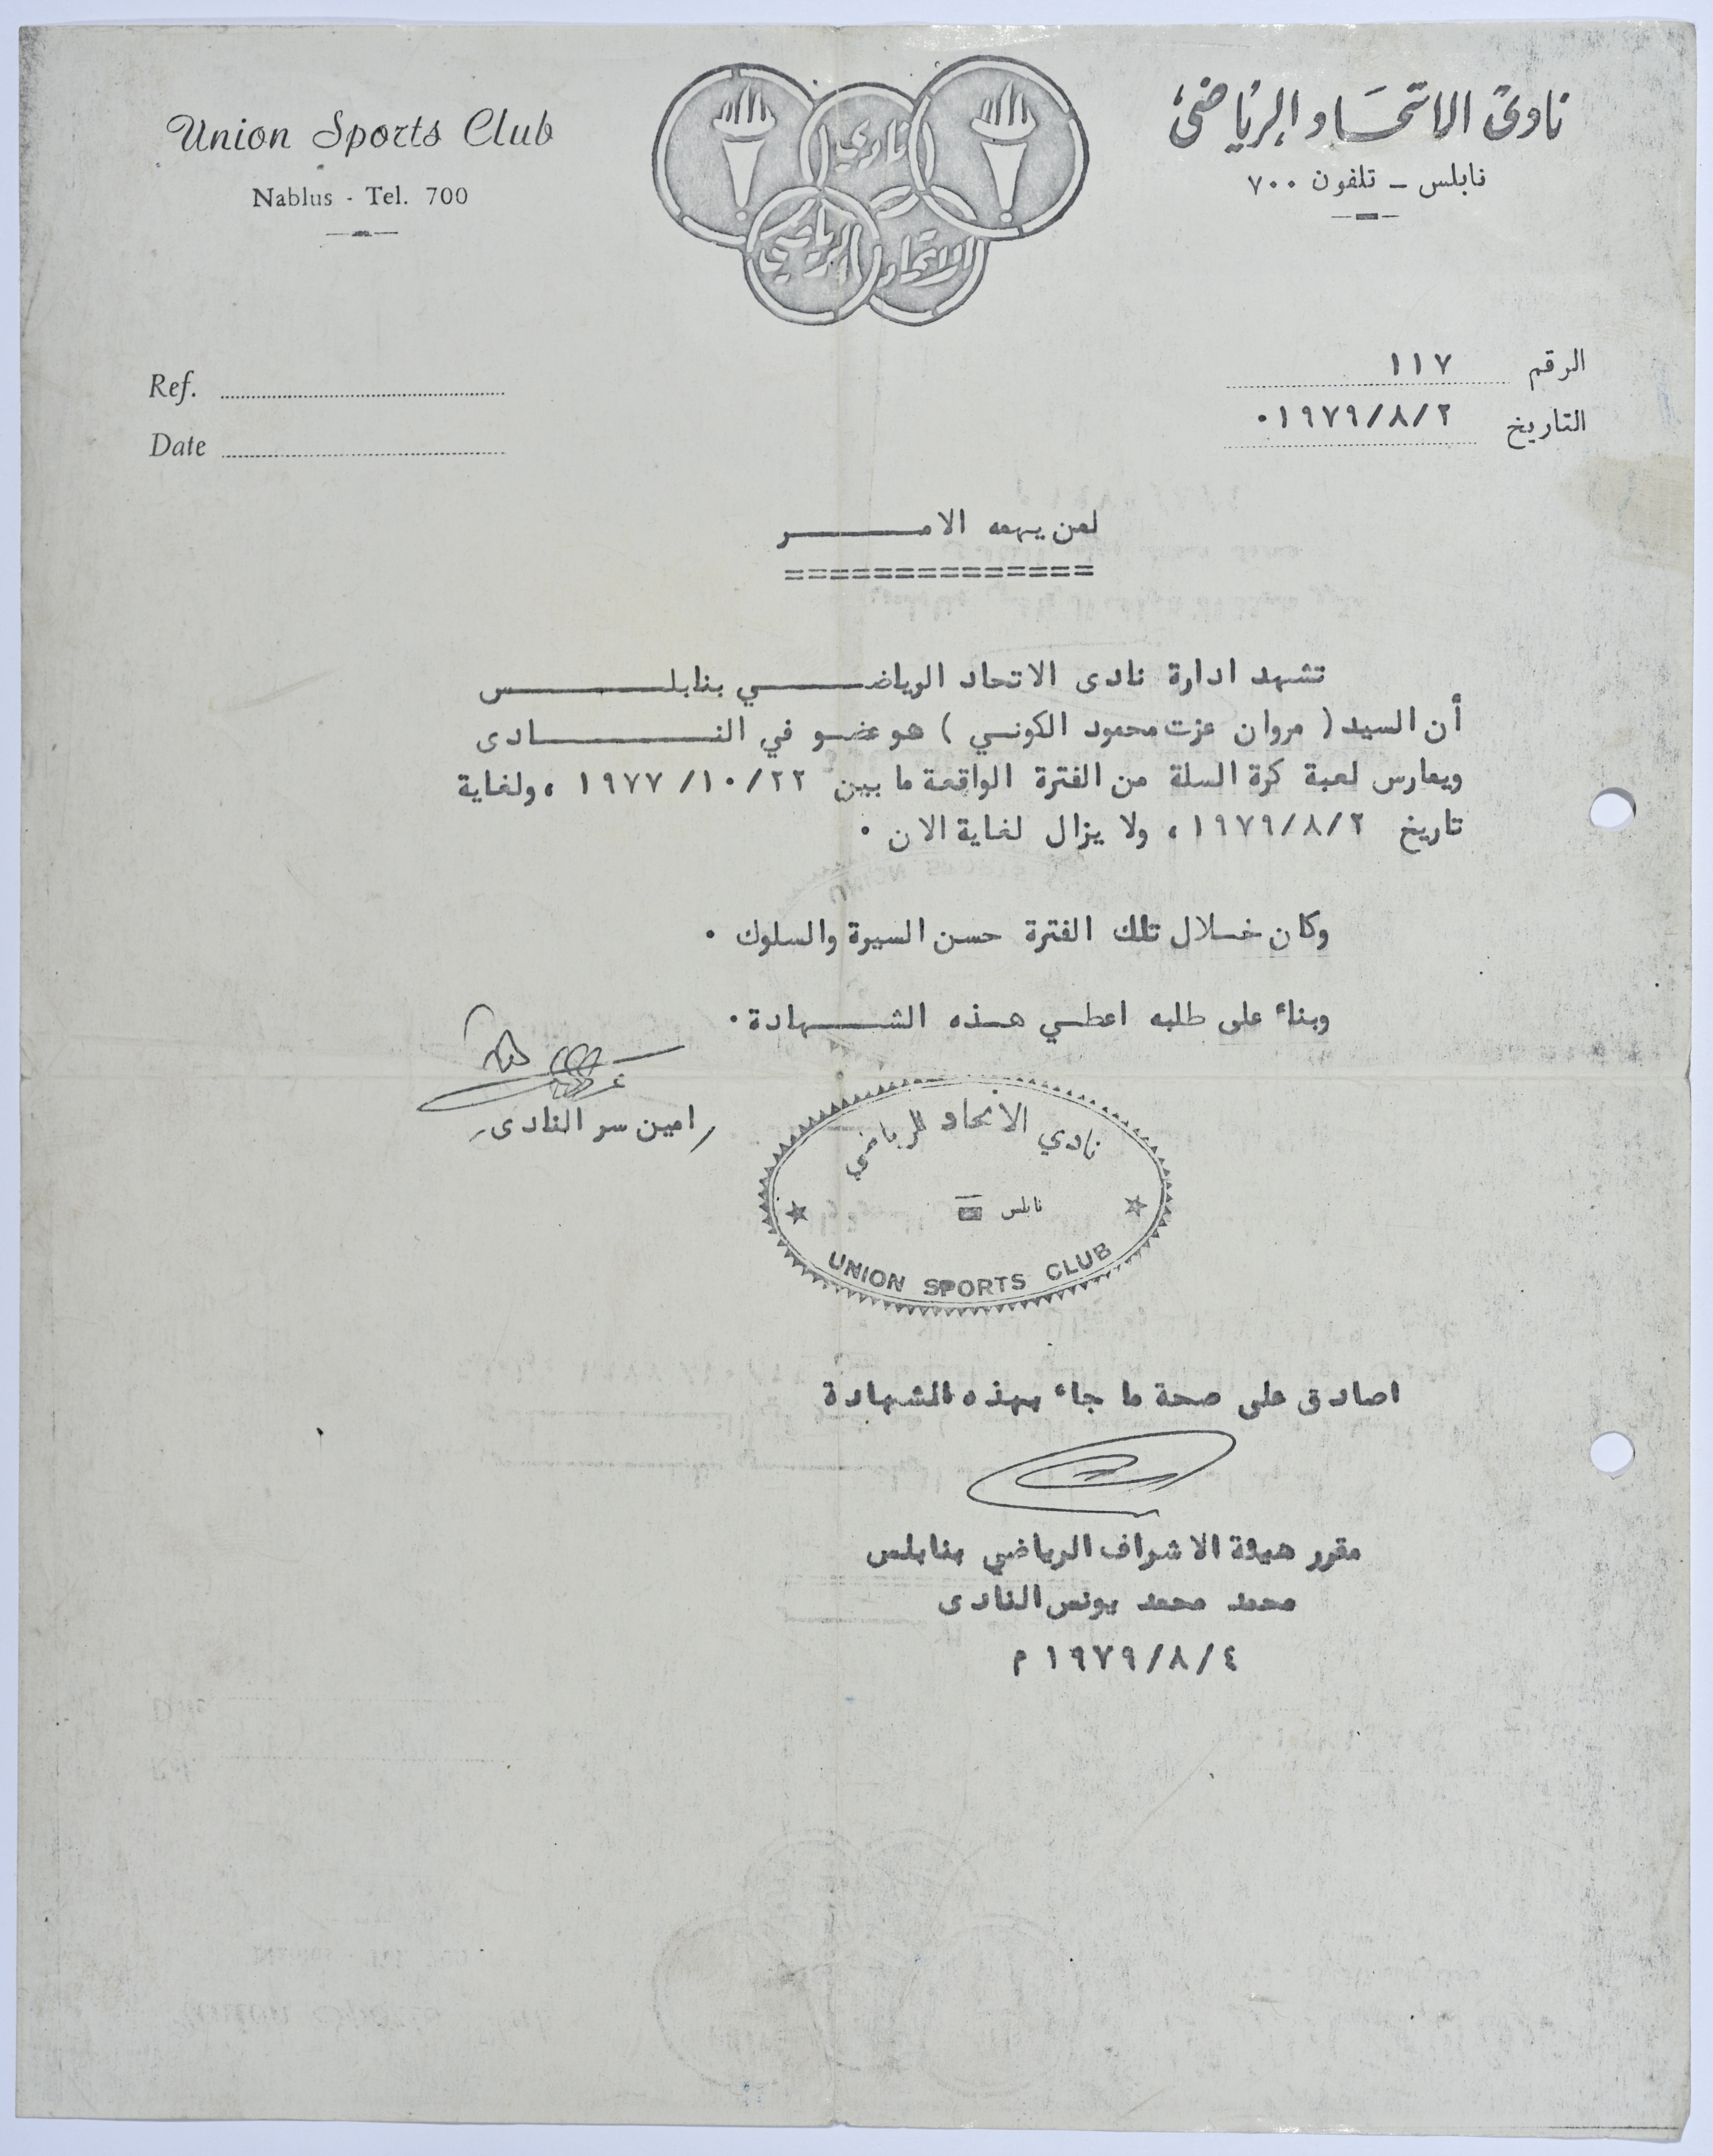 Union Sports Club
Nablus - Tel. 700
نادي
الاتحاد
الرياضي
نادى الاتحاد الرياضى
نابلس ـ تلفون ٧٠٠
Ref.
Date
الرقم ١١٧
التاريخ ١٩٧٩/٨/٢٠
لمن يهمه الامـــــر
==============
تشهد ادارة نادى الاتحاد الرياضـــــي بنابلـــــس
أن السيد ( مروان عزت محمود الكونـي ) هو عضـو في النـــــادى
ويمارس لعبة كرة السلة من الفترة الواقعة ما بين ١٩٧٧/١٠/٢٢ ، ولغاية
تاريخ ١٩٧٩/٨/٢ ، ولا يزال لغاية الان ٠
وكان خـلال تلك الفترة حسن السيرة والسلوك ٠
وبناء على طلبه اعطـي هـذه الشـــهادة ٠
/امين سر النادى/
نادي الاتحاد الرياضي
نابلس
UNION SPORTS CLUB
اصادق على صحة ما جاء بهذه الشهادة
مقرر هيئة الاشراف الرياضي بنابلس
محمد محمد يونس النادى
١٩٧٩/٨/٤ م